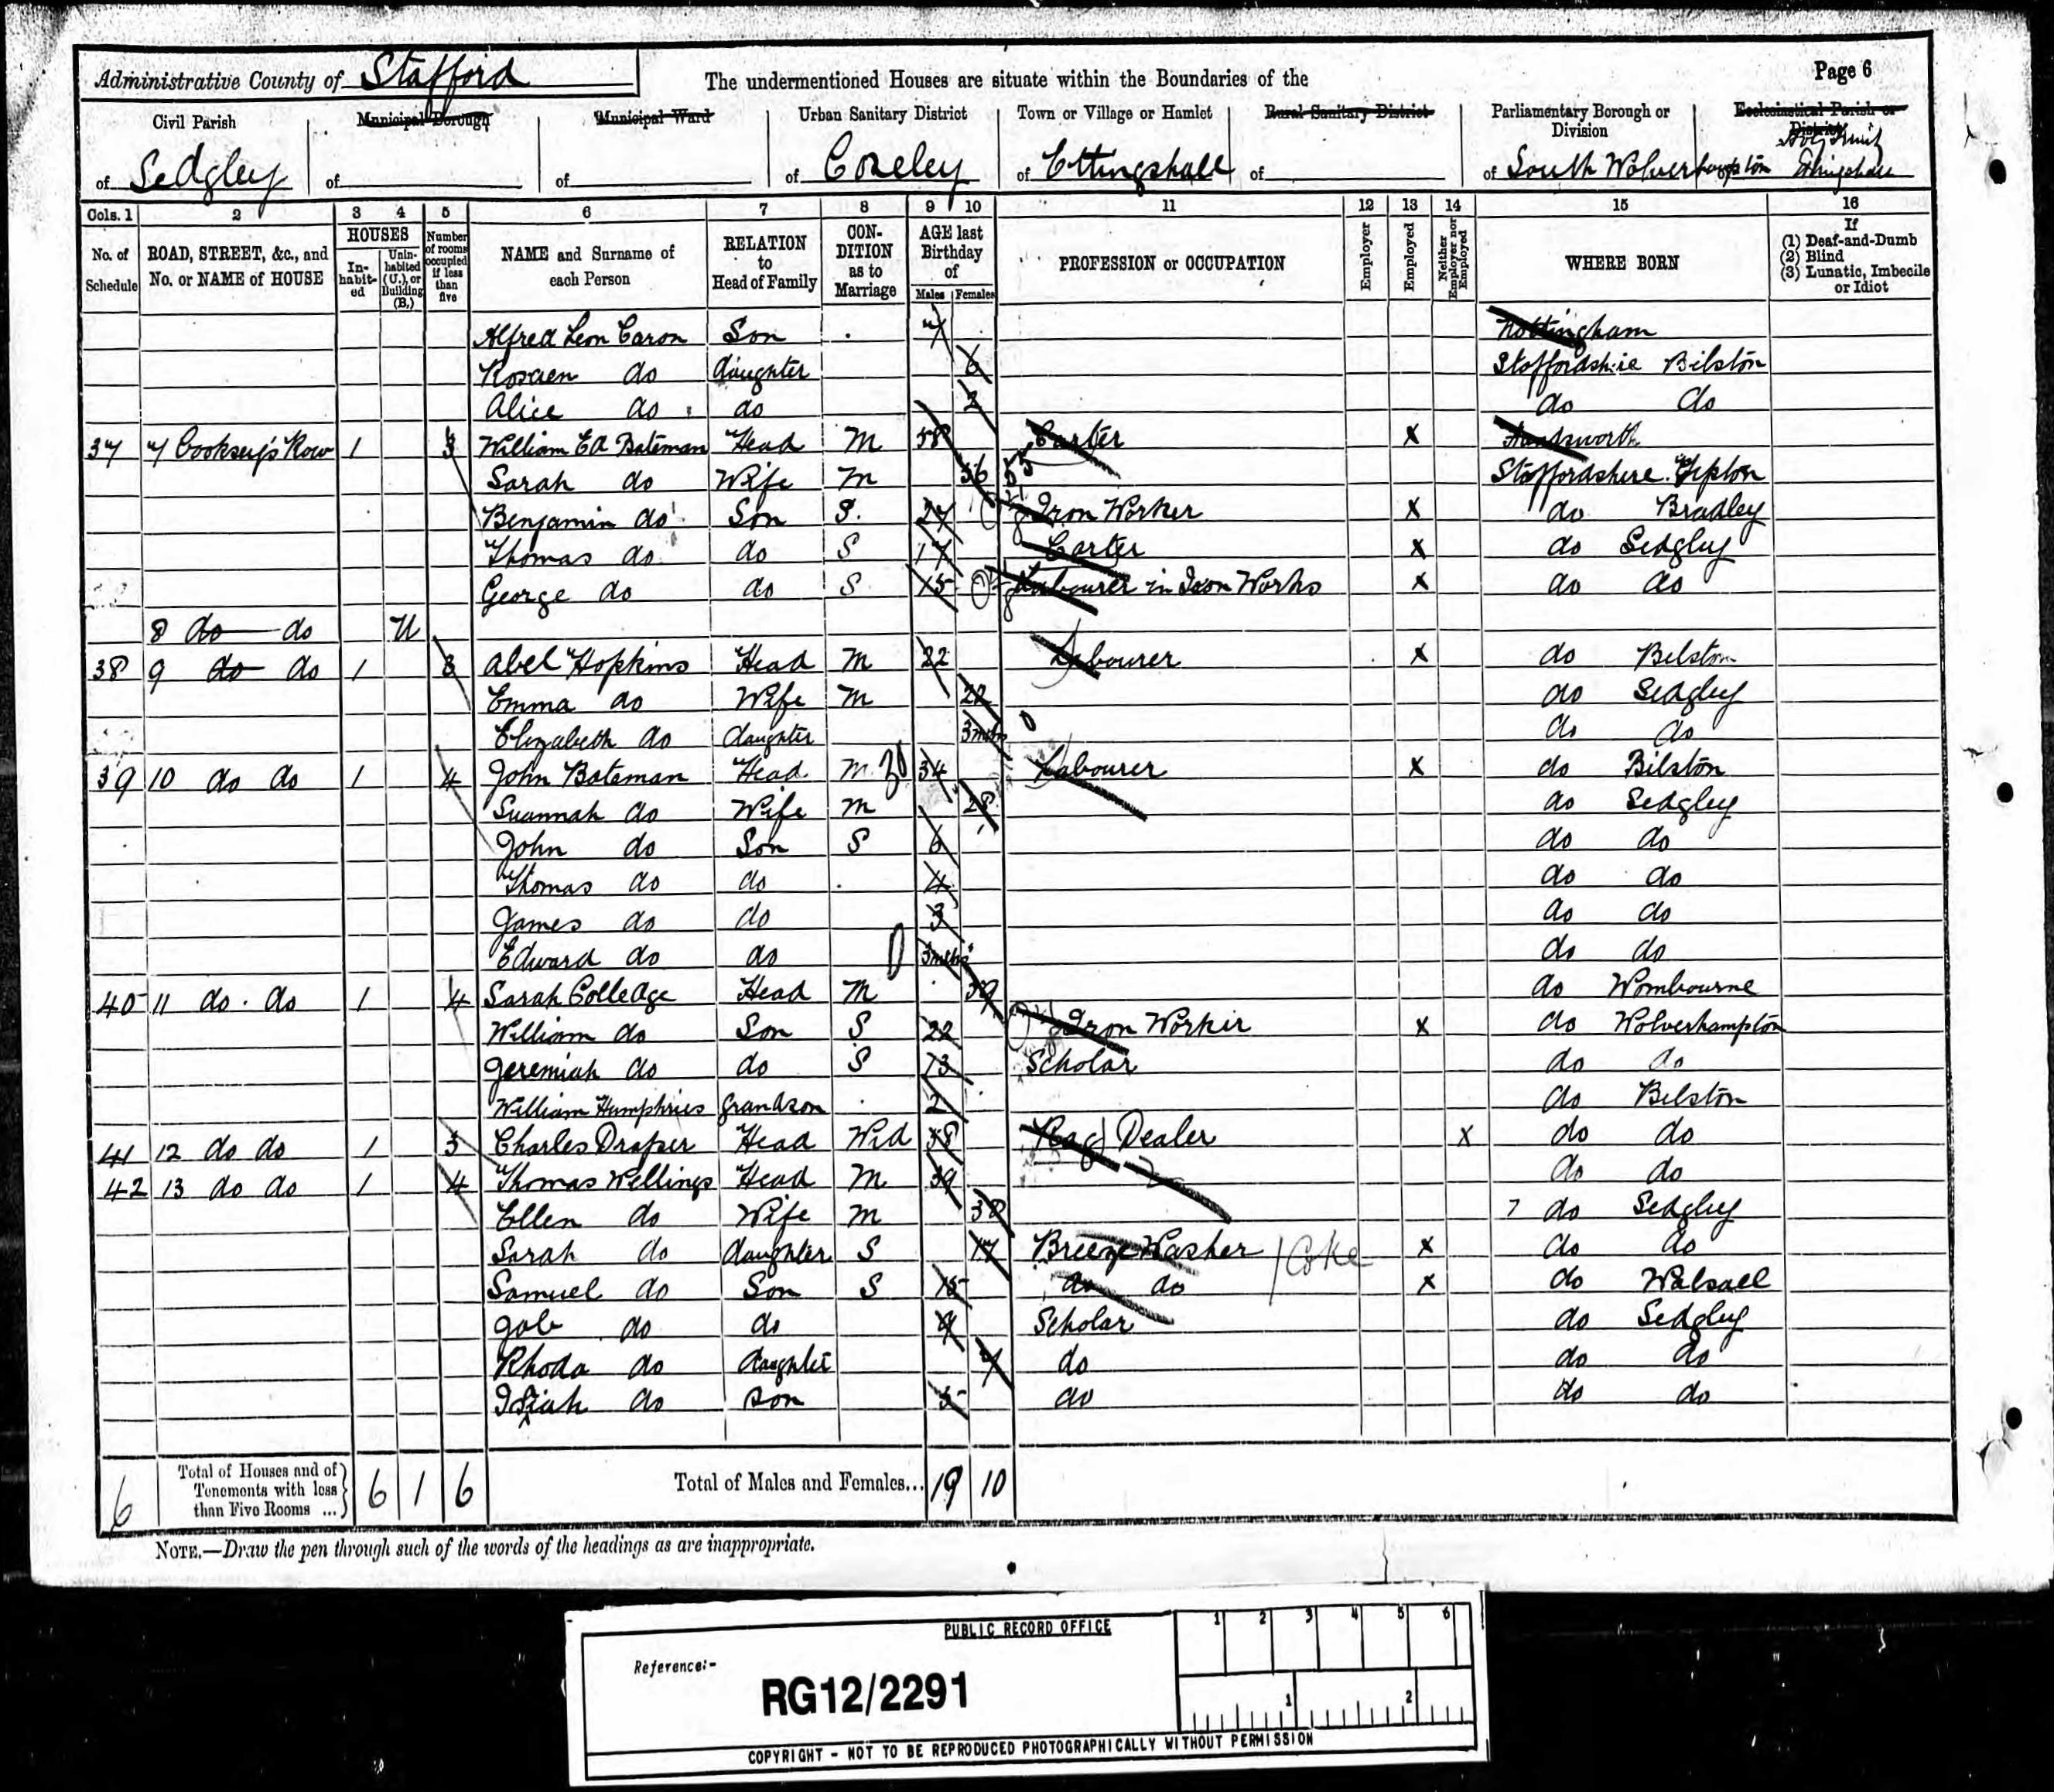 Administrative County of Stafford The undermentioned Houses are situate within the Boundaries of the Page 6
Civil Parish Municipal Borough Municipal Ward Urban Sanitary District Town or Village or Hamlet Rural Sanitary District Parliamentary Borough or Division Ecclesiastical Parish or District
of Sedgley of of of Coseley of Ettingshall of of South Wolverhampton Ettingshall
Cols. 1 2 3 4 5 6 7 8 9 10 11 12 13 14 15 16
No. of Schedule ROAD, STREET, &c., and No. or NAME of HOUSE HOUSES Inhabited Uninhabited (U.), or Building (B.) Number of rooms occupied if less than five NAME and Surname of each Person RELATION to Head of Family CONDITION as to Marriage AGE last Birthday of Males Females PROFESSION or OCCUPATION Employer Employed Neither Employer nor Employed WHERE BORN If (1) Deaf-and-Dumb (2) Blind (3) Lunatic, Imbecile or Idiot
Alfred Leon Caron Son 7 Nottingham
do daughter 6 Staffordshire Bilston
Alice do do 2 do do
37 7 Cooksey's Row 1 3 William Ed Bateman Head M 58 Carter x Handsworth
Sarah do Wife M 56 55 Staffordshire Tipton
Benjamin do Son S. 27 Iron Worker x do Bradley
Thomas do do S 17 Carter x do Sedgley
George do do S 15 Labourer in Iron Works x do do
8 do do U
38 9 do do 1 3 Abel Hopkins Head M 22 Labourer x do Bilston
Emma do Wife M 22 do Sedgley
Elizabeth do daughter 3 mths do do
39 10 do do 1 4 John Bateman Head M 34 Labourer x do Bilston
Suannah do Wife M 28 do Sedgley
John do Son S 6 do do
Thomas do do 4 do do
James do do 3 do do
Edward do do 3 mths do do
40 11 do. do 1 4 Sarah Colledge Head M 39 do Wombourne
William do Son S 22 Iron Worker x do Wolverhampton
Jeremiah do do S 13 Scholar do do
William Humphries grandson 2 do Bilston
41 12 do do 1 3 Charles Draper Head Wid 58 Rag Dealer x do do
42 13 do do 1 4 Thomas Wellings Head M 39 do do
Ellen do Wife M 38 7 do Sedgley
Sarah do daughter S 17 Breeze Washer / Coke x do do
Samuel do Son S 15 do do x do Walsall
Job do do 9 Scholar do Sedgley
Rhoda do daughter 7 do do do
Isiah do son 5 do do do
6 Total of Houses and of Tenements with less than Five Rooms ... 6 1 6 Total of Males and Females... 19 10
NOTE.—Draw the pen through such of the words of the headings as are inappropriate.
PUBLIC RECORD OFFICE
1 2 3 4 5 6
Reference:-
RG12/2291
1 2
COPYRIGHT - NOT TO BE REPRODUCED PHOTOGRAPHICALLY WITHOUT PERMISSION